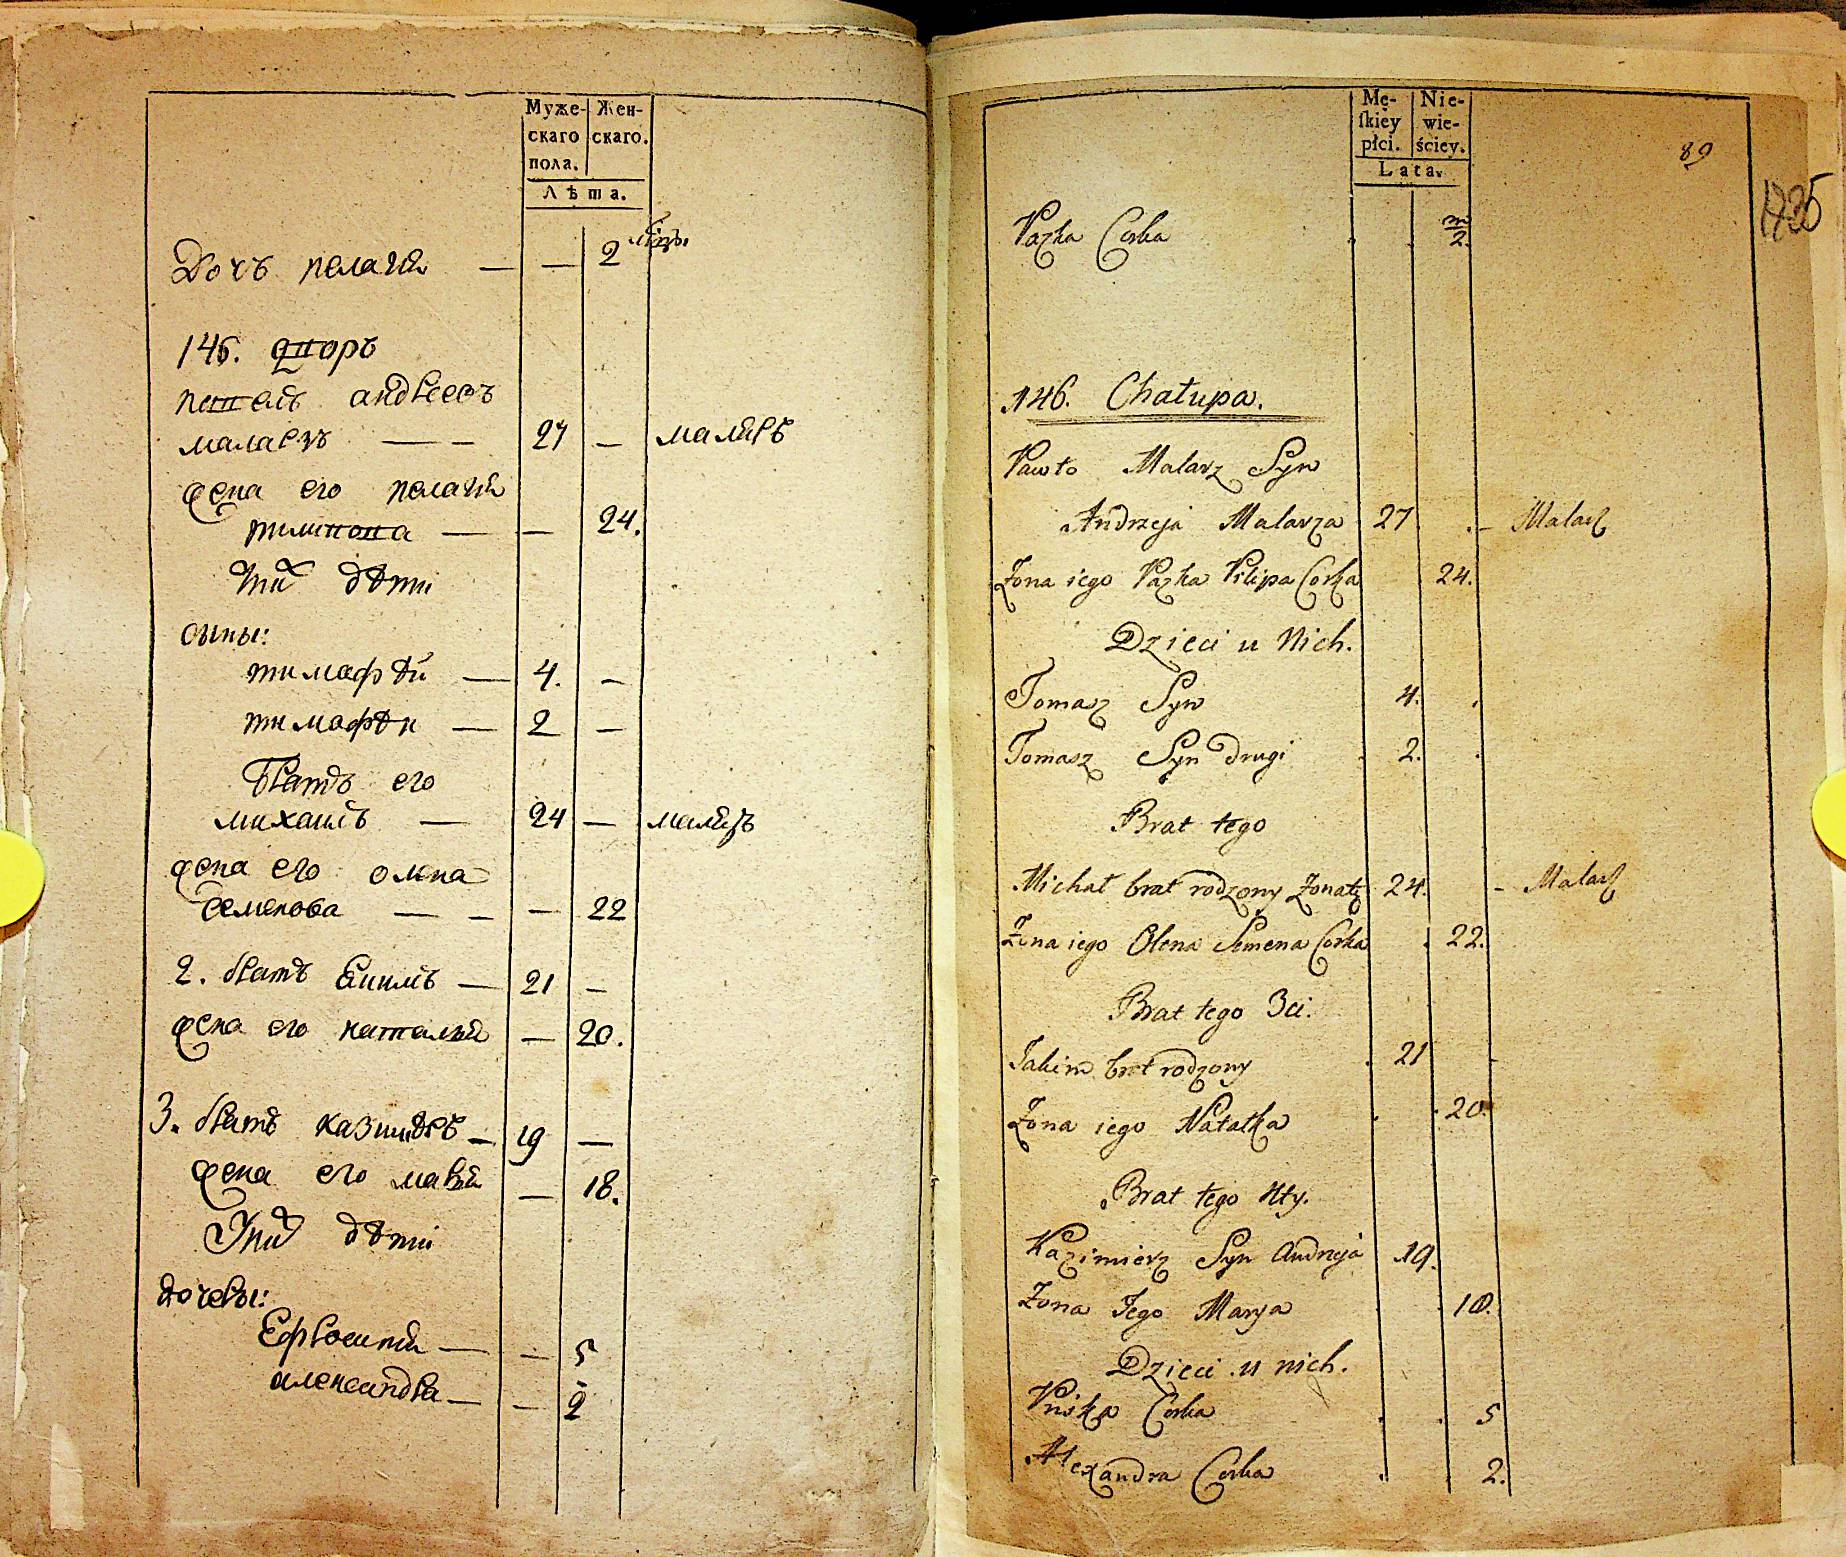 Муже- Жен-
скаго скаго.
пола.
Лѣта.
Дочь пелагия — — 2
146. двoръ
павелъ андреевъ
маларзъ — — 27 — маляръ
жена его пелагия
филипова — — 24.
У них дѣти
сыны:
тимофѣй — 4. —
тимофѣй — 2 —
Братъ его
михаилъ — 24 — маляръ
жена его олена
семенова — — — 22
2. братъ Екимъ — 21 —
жена его наталия — 20.
3. братъ казимѣръ — 19 —
жена его мария — 18.
У них дѣти
дочери:
Ефросиния — — 5
александра — — 2
Mę- Nie-
ſkiey wie-
płci. ściey.
Lata.
89
Pazka Corka m 2.
146. Chałupa.
Pawło Malarz Syn
Andrzeja Malarza 27 . – Malarz
Zona iego Pazka Filipa Corka 24.
Dzieci u Nich.
Tomasz Syn 4.
Tomasz Syn drugi 2.
Brat tego
Michał brat rodzony Zonaty 24. – Malarz
Zona iego Olena Semena Corka 22.
Brat tego 3ci.
Jakim brat rodzony 21
Zona iego Natalka 20.
Brat tego 4ty.
Kazimierz Syn Andrzeja 19.
Zona Jego Marya 18.
Dzieci u nich.
Corka 5
Alexandra Corka 2.